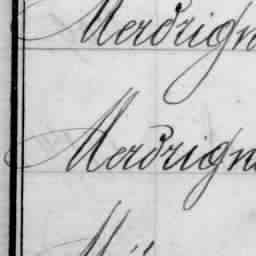 Merdrign
Merdrign